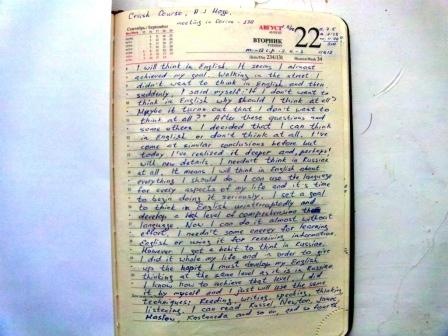 Crash Course, A J Hoge.
meeting in
Сентябрь / September
АВГУСТ
ВТОРНИК
22
234/131
34
I will think in English. It seems I almost
achieved my goal. Walking in the street I
didn't want to think in English and then
suddenly, I said myself: If I don't want to
think in English why should I think at all?
Maybe it turns out that I don't want to
think at all?" After these questions and
some others I decided that I can think
in English or don't think at all. I've
come at similar conclusions before but
today I've realized it deeper and, perhaps,
with new details. I needn't think in Russian
at all. It means I will think in English about
everything I should do. I can use the language
for every aspects of my life and it's time
to begin doing it seriously. I set a goal
to think in English uninterruptedly and
develop a level of comprehension the
language. Now I can do it almost without
effort. I needn't some energy for learning
English or using it for receiving information.
However I got a habit to think in Russian.
I did it whole my life and in order to give
up the habit I must develop my English
thinking at the same level as it is in Russian.
I know how to achieve that level. I did
it by myself and I just will use the same
techniques. Reading, writing, speaking, thinking
listening. I can read Fussel, Newton, Jones
Maslow, Kastaneda and so on and so forth